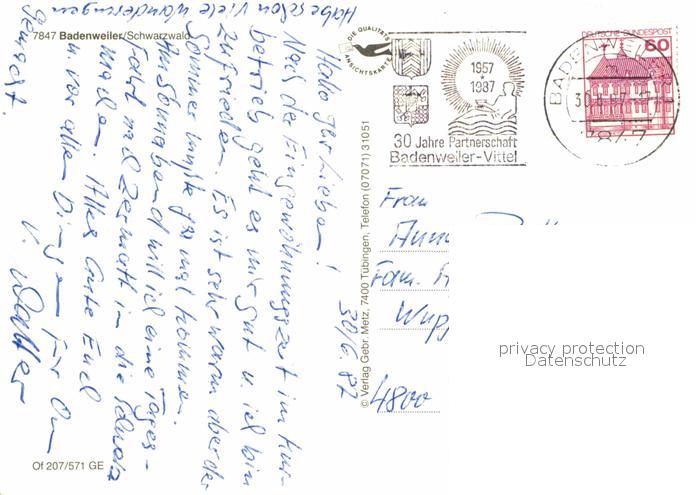 7847 Badenweiler/Schwarzwald
30/6. 87
Hallo Ihr Lieben!
Nach der Eingewöhnungszeit im Kur-
betrieb geht es mir gut u. ich bin
zufrieden. Es ist sehr warm aber der
Sommer mußte ja mal kommen.
Am Sonnabend will ich eine Tages-
fahrt nach Zermatt in die Schweiz
machen. Alles Gute Euch
u. vor allen Dingen für
V. Walter
Habe schon viele Wanderungen
gemacht.
Of 207/571 GE
© Verlag Gebr. Metz, 7400 Tübingen, Telefon (07071) 31051
DIE QUALITÄTS
ANSICHTSKARTE
1957
1987
30 Jahre Partnerschaft
Badenweiler-Vittel
DEUTSCHE BUNDESPOST
60
BADENWEILER
7847
Frau
Fam.
4800
privacy protection
Datenschutz